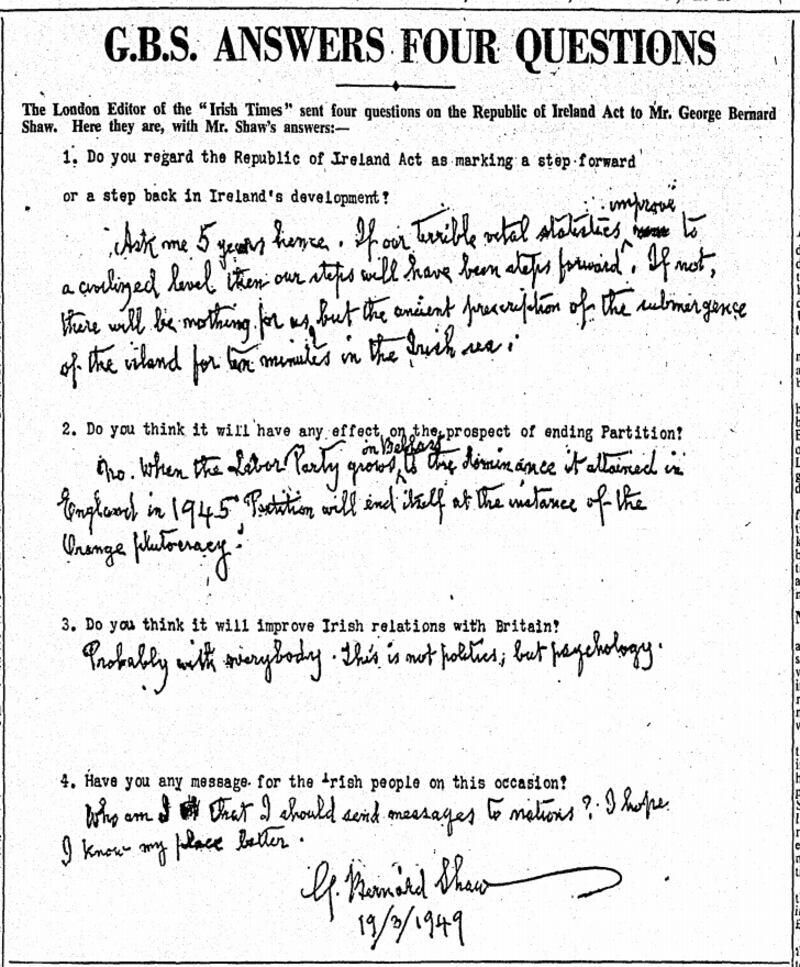 G.B.S. ANSWERS FOUR QUESTIONS
The London Editor of the "Irish Times" sent four questions on the Republic of Ireland Act to Mr. George Bernard
Shaw. Here they are, with Mr. Shaw's answers:—
1. Do you regard the Republic of Ireland Act as marking a step forward
or a step back in Ireland's development?
improve
Ask me 5 years hence. If our terrible vital statistics to
a civilized level then our steps will have been steps forward. If not,
there will be nothing for us but the ancient prescription of the submergence
of the island for ten minutes in the Irish sea.
2. Do you think it will have any effect on the prospect of ending Partition?
in Belfast
No. When the Labor Party grows to the dominance it attained in
England in 1945 Partition will end itself at the instance of the
Orange plutocracy.
3. Do you think it will improve Irish relations with Britain?
Probably with everybody. This is not politics; but psychology.
4. Have you any message for the Irish people on this occasion?
Who am I that I should send messages to nations? I hope
I know my place better.
G. Bernard Shaw
19/3/1949